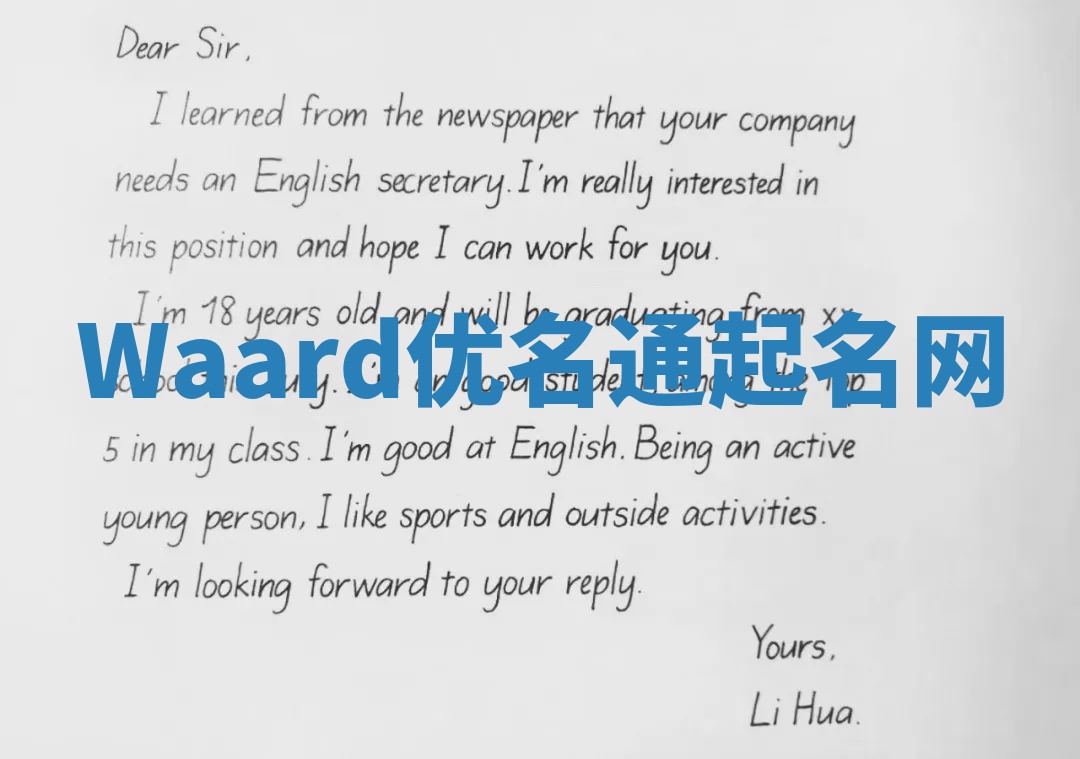 Dear Sir,
I learned from the newspaper that your company
needs an English secretary. I'm really interested in
this position and hope I can work for you.
I'm 18 years old and will be graduating from xx
Waard优名通起名网
good student, among the Top
5 in my class. I'm good at English. Being an active
young person, I like sports and outside activities.
I'm looking forward to your reply.
Yours,
Li Hua.